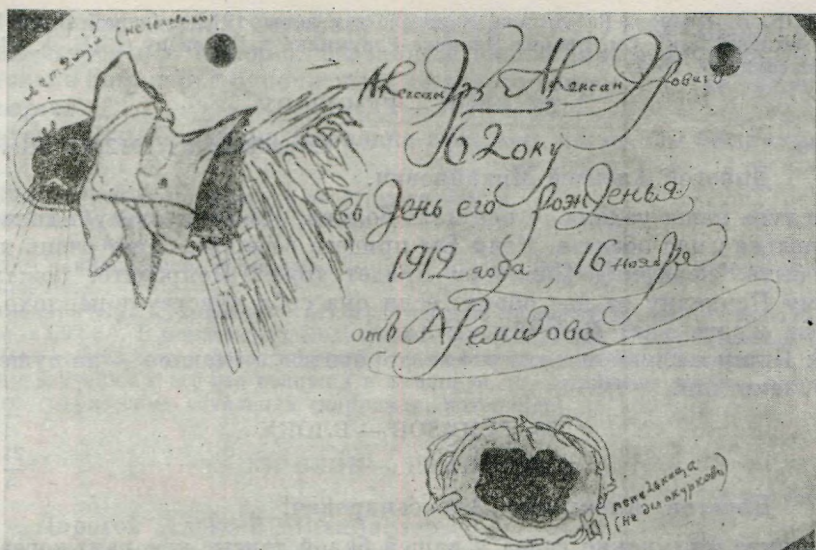 (не готовыю)
Александр Александрович
Блоку
въ День его рожДенья
1912 года, 16 ноября
отъ А Ремизова
пепельница
(не для окурковъ)